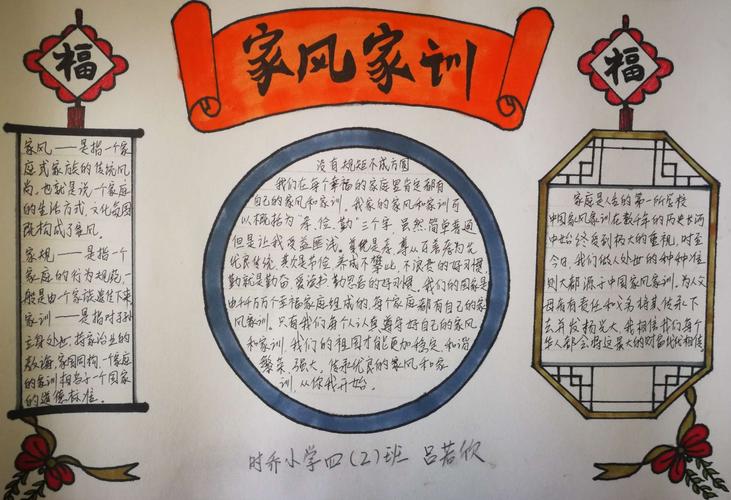 家风家训
福
福
家风——是指一个家
庭或家族的传统风
尚。也就是说一个家庭
的生活方式,文化氛围
既构成了家风。
家规——是指一个
家庭的行为规范,一
般是由个家族遗传下来
家训——是指对子孙
立身处世,持家治业的
教诲,家国同构,一个家庭
的家训相当于一个国家
的道德标准。
没有规矩不成方圆
我们在每个幸福的家庭里肯定都有
自己的家风和家训。我家的家风和家训可
以概括为“孝、俭、勤”三个字,虽然简单普通
但是让我受益匪浅。首先是孝,尊从百善孝为先
优良传统,其次是节俭,养成不攀比,不浪费的好习惯,
勤就是勤奋,爱学和勤劳着的好习惯。我们的国家是
由千千万万个幸福家庭组成的,每个家庭都有自己的家
风家训。只有我们每个人认真遵守好自己的家风
和家训,我们的祖国才能更加稳定,和谐
繁荣、强大。传承优良的家风和家
训,从你我开始。
家庭是人生的第一所学校
中国家风家训在数千年的历史长河
中始终受到极大的重视,时至
今日,我们做人处世的种种准
则大都源于中国家风家训。为人父
母者有责任和义务将其传承下
去并发扬光大,我相信我们每个
华人都会将这最大的财富代代相传
时乔小学四(2)班 吕若欣